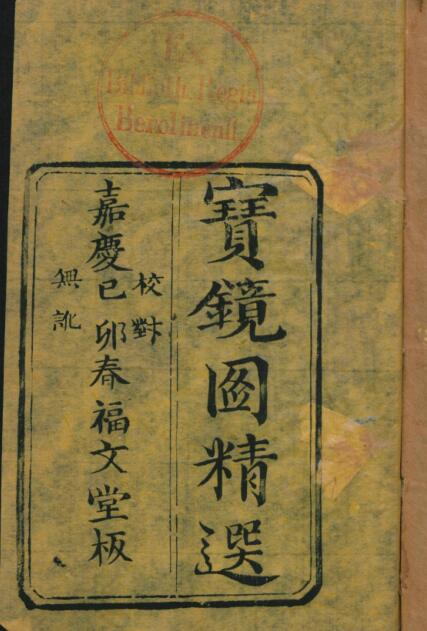 Ex
Biblioth. Regia
Berolinensi.
寶鏡圖精選
校對
嘉慶己卯春福文堂板
無訛